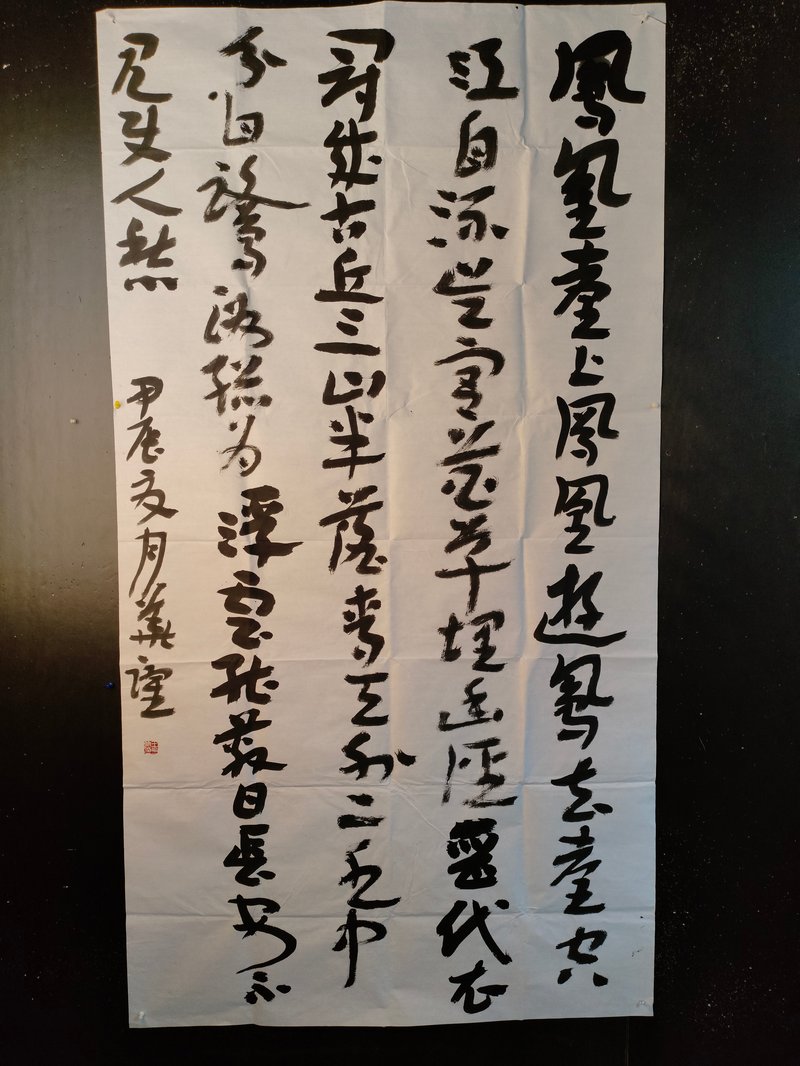 鳳凰臺上鳳凰遊鳳去臺空
江自流吴宮花草埋幽徑晉代衣
冠成古丘三山半落青天外二水中
分白鷺洲總為浮雲能蔽日長安不
見使人愁
甲辰夏月